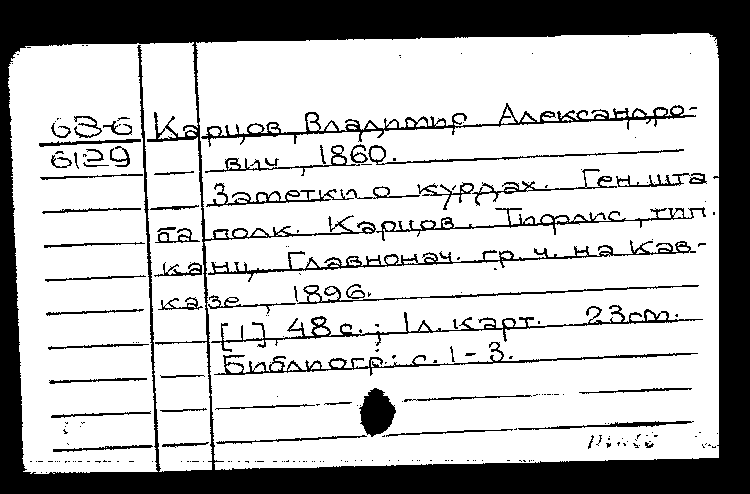 63-6 Карцов, Владимир Александро-
6129 вич, 1860.
Заметки о курдах. Ген. шта-
ба полк. Карцов. Тифлис, тип.
канц. Главнонач. гр. ч. на Кав-
казе, 1896.
[1], 48 с.; 1 л. карт. 23 cm.
Библиогр.: с. 1-3.